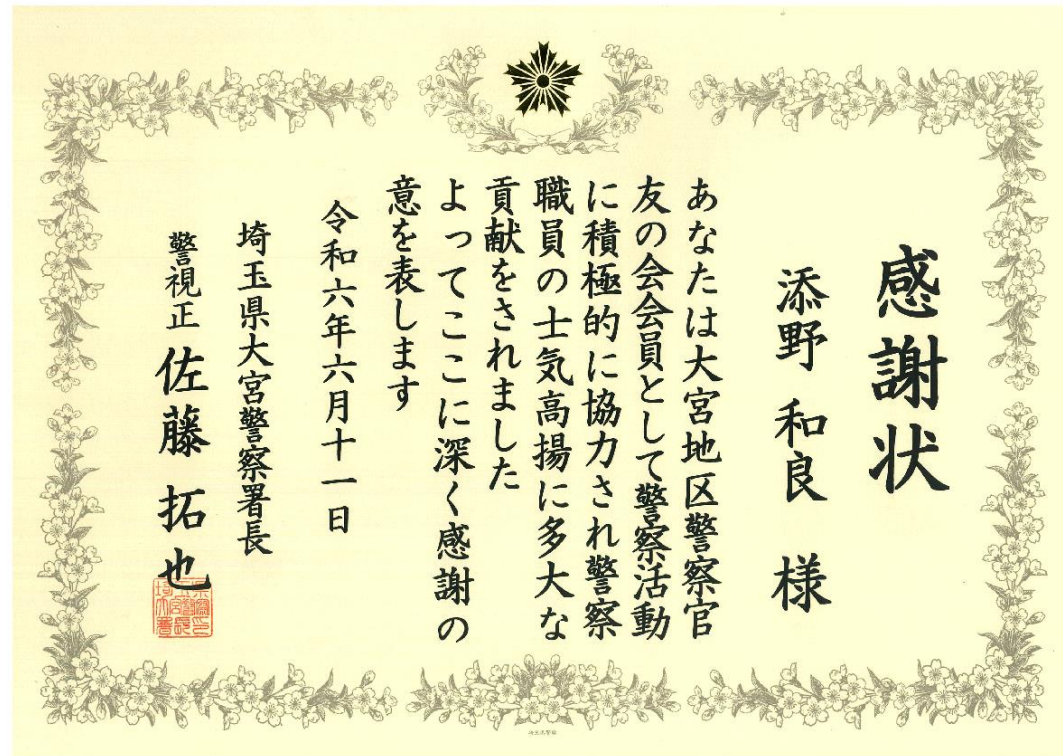 感謝状
添野 和良 様
あなたは大宮地区警察官
友の会会員として警察活動
に積極的に協力され警察
職員の士気高揚に多大な
貢献をされました
よってここに深く感謝の
意を表します
令和六年六月十一日
埼玉県大宮警察署長
警視正 佐藤 拓也